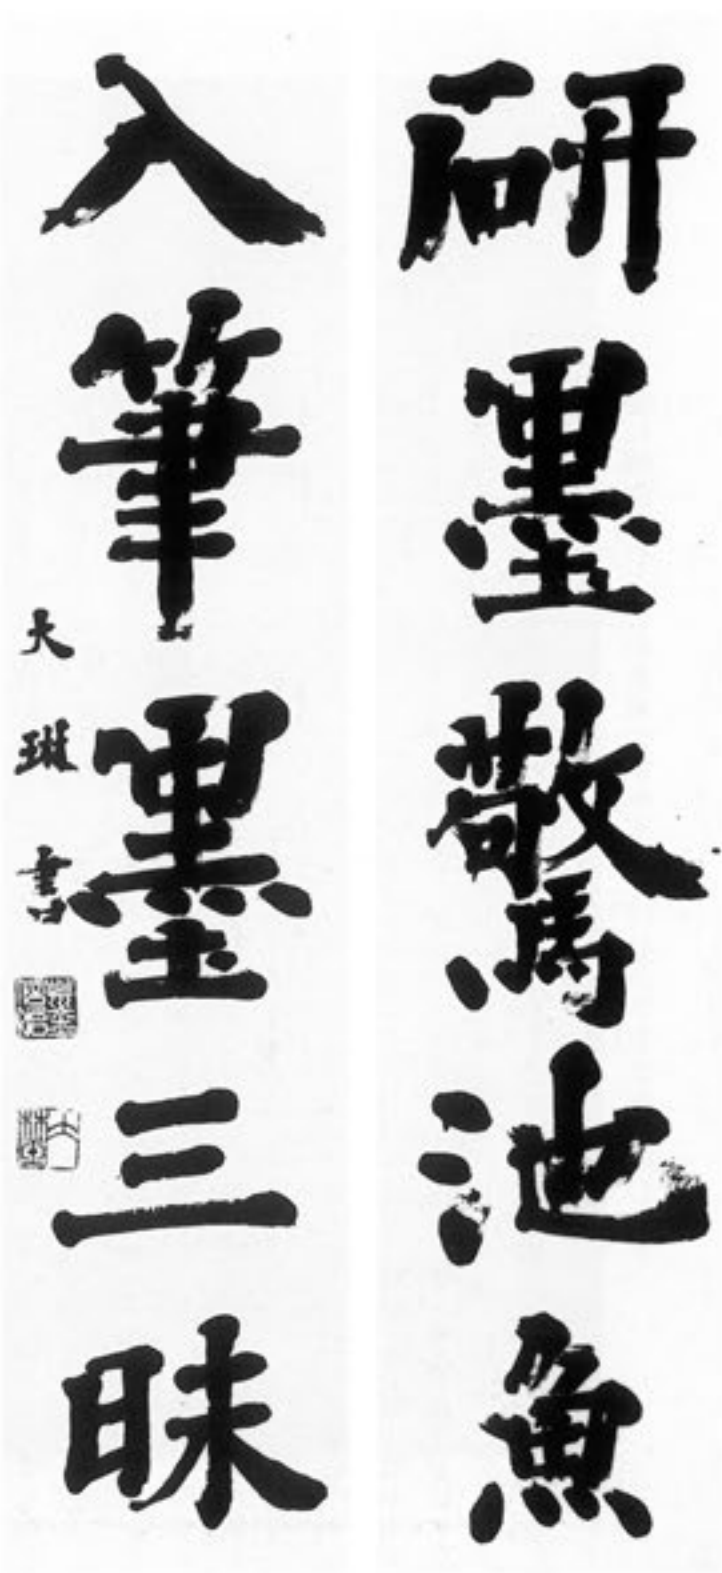 研墨驚池魚
入筆墨三昧
大琳書